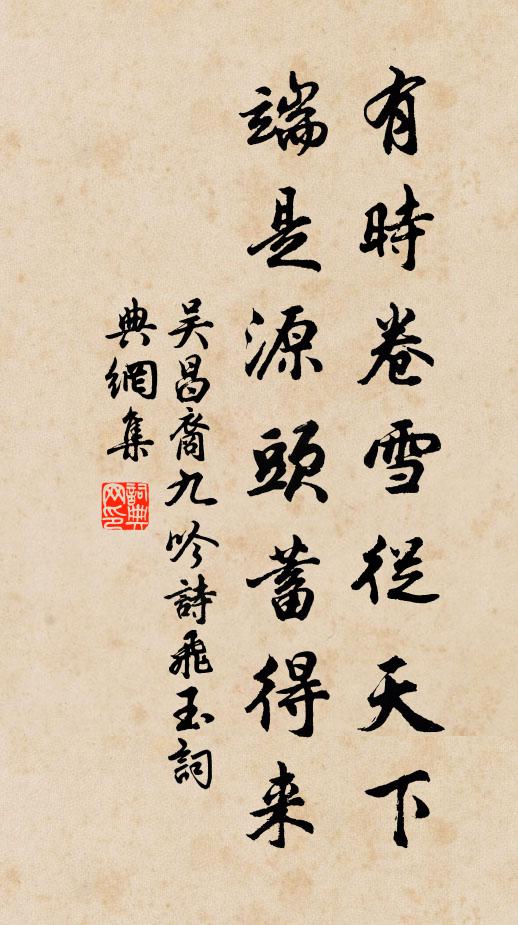 有時卷雪從天下
端是源頭蓄得来
吴昌裔九吟詩飛玉詞
典網集
詞典
网印